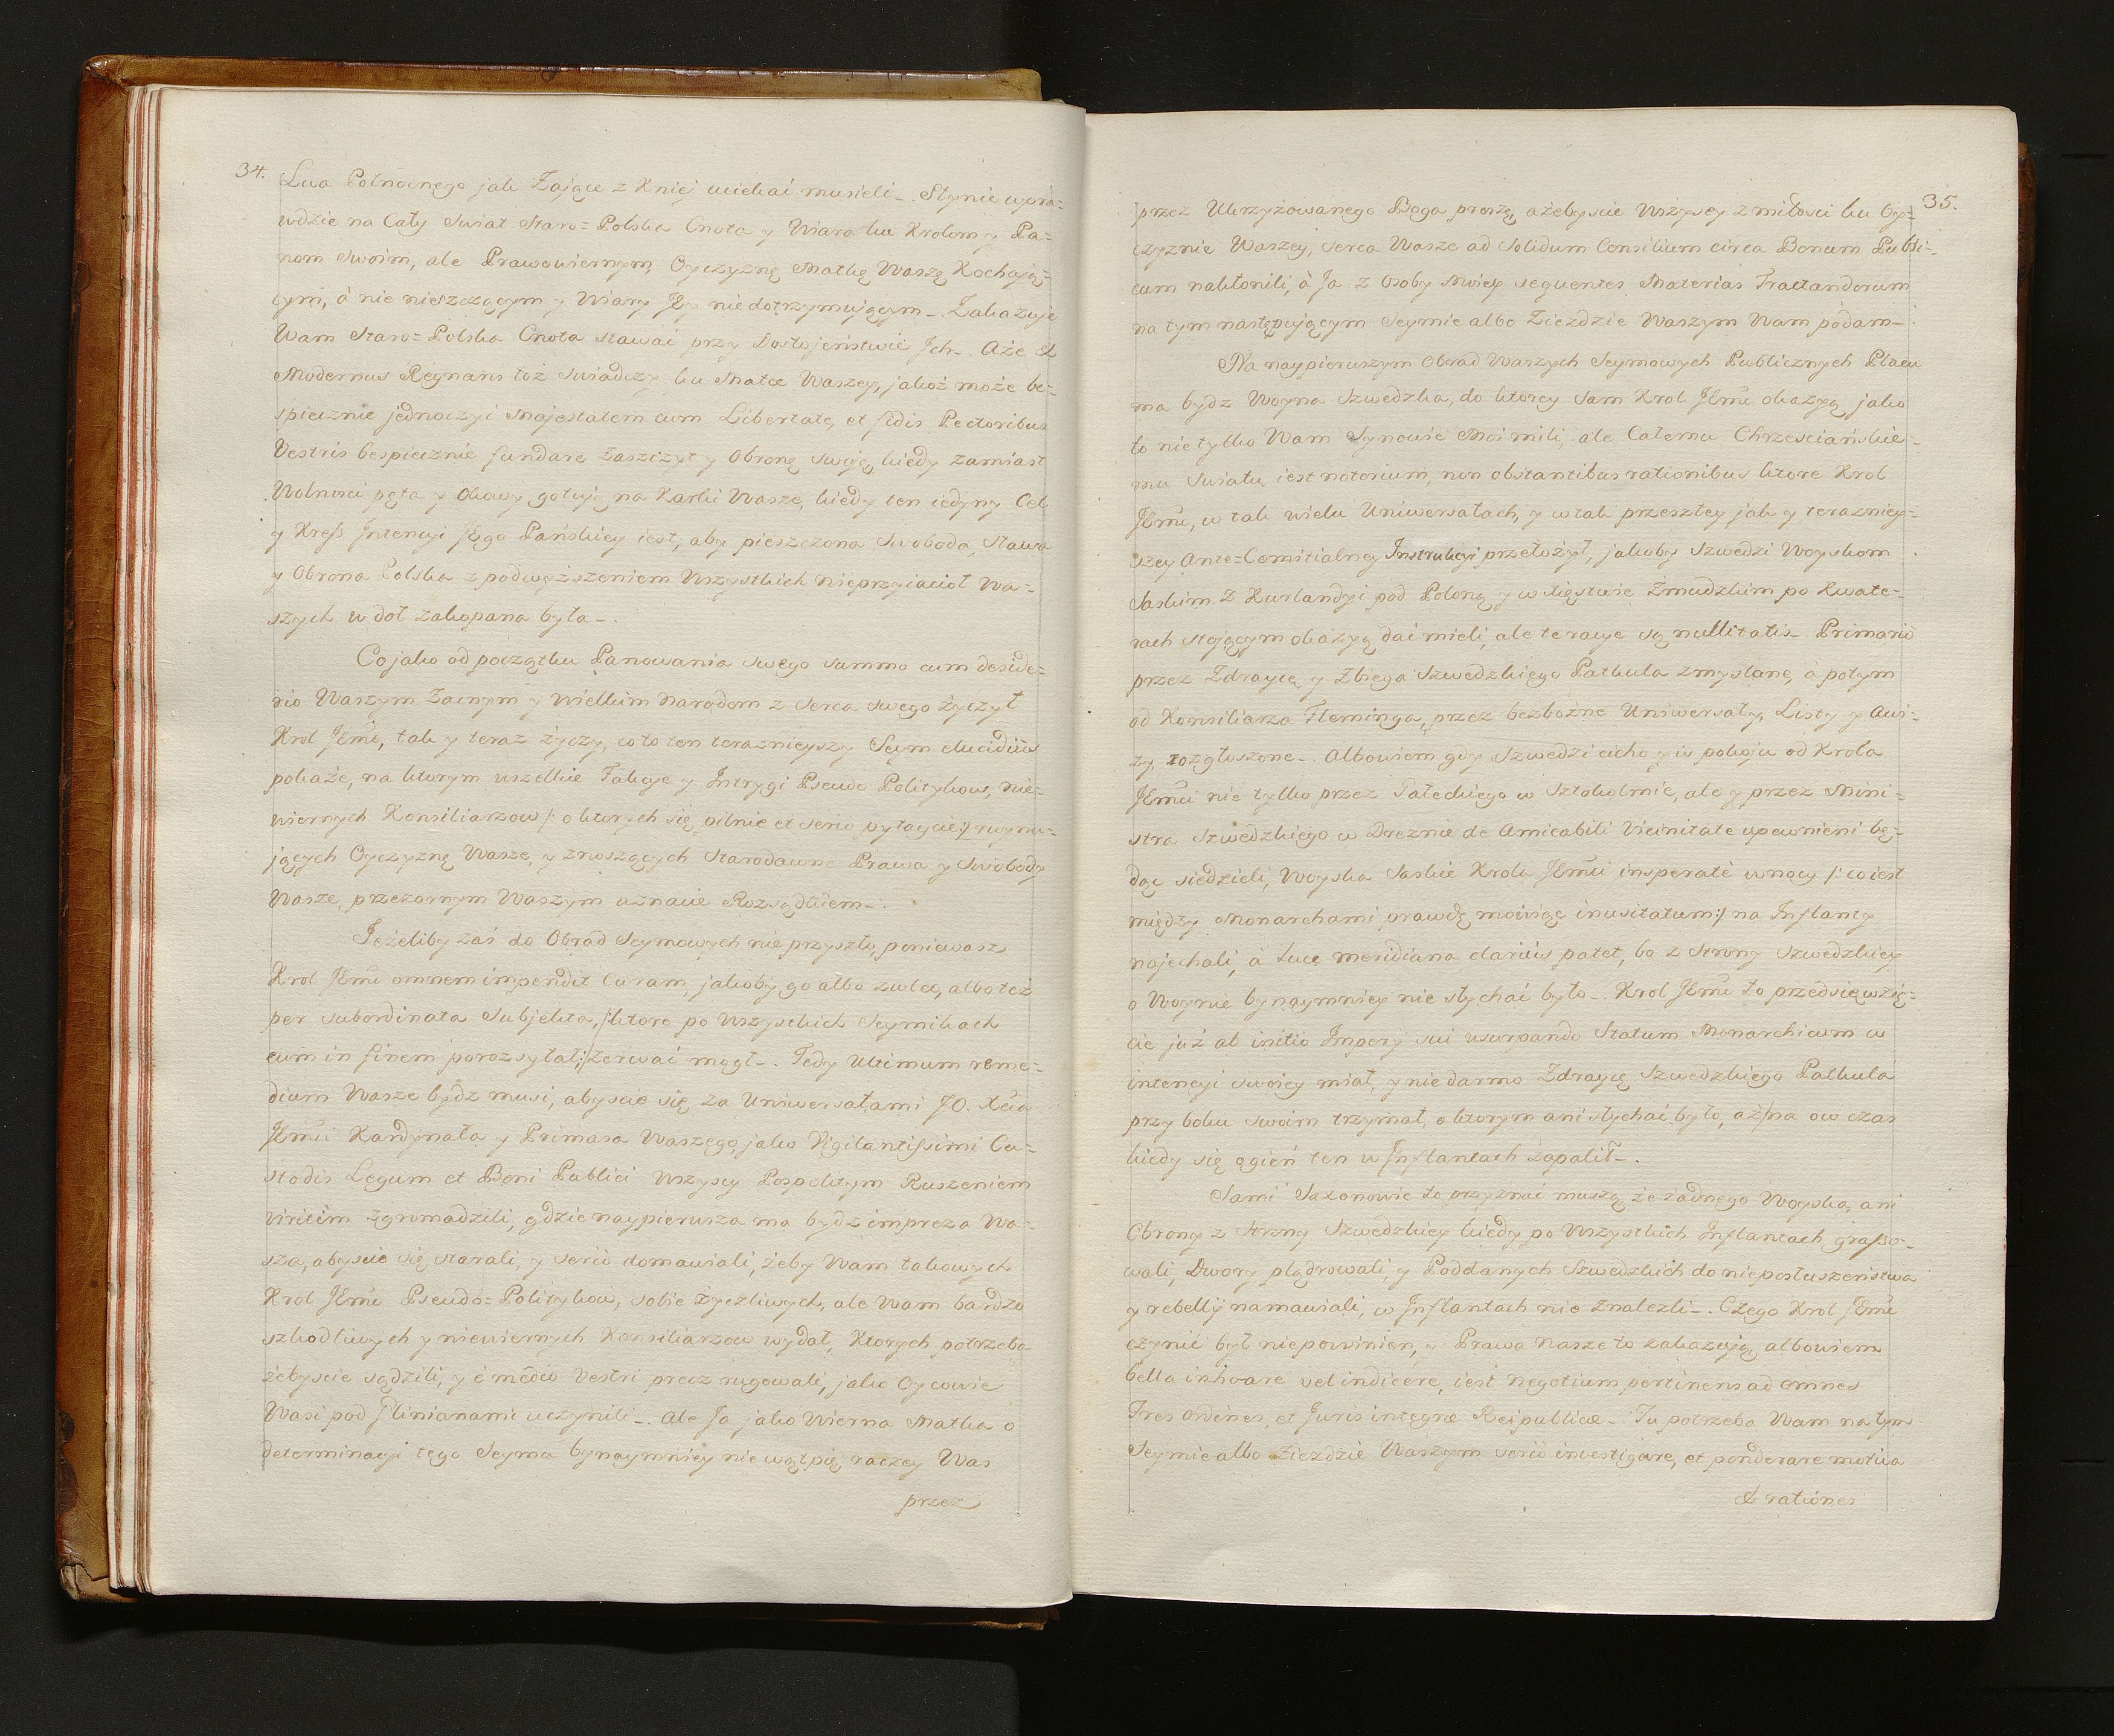 34.
Lwa Połnocnego jak Zające z Kniej uciekać musieli_. Słynie wpra=
wdzie na Cały Swiat Staro=Polska Cnota y Wiara ku Krolom y Pa=
nom swoim, ale Prawowiernym, Oyczyznę Matkę Waszę Kochają=
cym, à nie niszczącym y Wiary Jey niedotrzymującym_. Zakazuje
Wam Staro=Polska Cnota stawać przy Dostojeństwie Jch_. Aże &
Modernus Regnans toż swiadczy ku Matce Waszey, jakoż może be=
spiecznie jednoczyć Majestatem cum Libertate, et fidis Pectoribus
Vestris bespiecznie fundare Zaszczyt y Obronę swoję, kiedy zamiast
Wolnosci pęta y Okowy gotuje na Karki Wasze, kiedy ten iedyny Cel
y Kreſs Jntencyi Jego Pańskiey iest, aby pieszczona Swoboda, Sława
y Obrona Polska z podwęższeniem Wszystkich Nieprzyiacioł Wa=
szych w doł zakopana była_.
Co jako od początku Panowania swego summo cum deside=
rio Waszym Zacnym y Wielkim Narodom z serca swego życzył
Krol JEmć, tak y teraz życzy, co to ten teraznieyszy Seym elucidius
pokaże, na ktorym wszelkie Fakcye y Jntrygi Pseudo Politykow, nie=
wiernych Konsiliarzow /: o ktorych się pilnie et serio pytaycie :/ ruynu=
jących Oyczyznę Wasze, y znoszących Starodawne Prawa y Swobody
Wasze, przezornym Waszym uznacie Rozsądkiem_.
Jeżeliby zaś do Obrad Seymowych nie przyszło, poniewasz
Krol JEmć omnem impendit Curam, jakoby go albo zwlec, albo też
per subordinata Subjekta, /: ktore po Wszystkich Seymikach
eum in finem porozsyłał :/ zerwać mogł_. Tedy Ultimum reme=
dium Wasze bydź musi, abyscie się za Uniwersałami JO. Xcia
JEmci Kardynała y Primasa Waszego, jako Vigilantiſsimi Cu=
stodis Legum et Boni Publici Wszyscy Pospolitym Ruszeniem
Viritim zgromadzili, gdzie naypierwsza ma bydz impreza Wa=
sza, abyscie się starali, y seriò domawiali, żeby Wam takowych
Krol JEmć Pseudo=Politykow, sobie życzliwych, ale Wam bardzo
szkodliwych y niewiernych Konsiliarzow wydał, Ktorych potrzeba
żebyscie sądzili, y è mediò Vestri precz rugowali, jako Oycowie
Wasi pod Glinianami uczynili_. Ale Ja jako Wierna Matka o
determinacyi tego Seymu bynaymniey nie wątpię, raczey Was
przez
35.
przez Ukrzyżowanego Boga proszę, ażebyscie Wszyscy z miłosci ku Oy=
czyznie Waszey, serca Wasze ad Solidum Consilium circa Bonum Publi=
cum nakłonili, à Ja z Osoby Moiey sequentes Materias Tractandorum
na tym następującym Seymie albo Zieździe Waszym Wam podam_.
Na naypierwszym Obrad Waszych Seymowych Publicznych Placu
ma bydz Woyna Szwedzka, do ktorey sam Krol JEmć okazyą, jako
to nie tylko Wam Synowie Moi mili, ale Całemu Chrzesciańskie=
mu Swiatu iest notorium, non obstantibus rationibus ktore Krol
JEmć, w tak wielu Uniwersałach, y w tak przeszłey jak y teraznięy=
szey Ante=Comitialney Instrukcyi przełożył, jakoby Szwedzi Woyskom
Saskim z Kurlandyi pod Połonę y w Xięstwie Żmudzkim po Kwate=
rach stojącym okazyą dać mieli, ale te racye są nullitatis_ Primariò
przez Zdraycę y Zbiega Szwedzkiego Patkula zmyslane, à potym
od Konsiliarza Fleminga, przez bezbożne Uniwersały, Listy y Awi=
zy rozgłoszone_. Albowiem gdy Szwedzi cicho y w pokoju od Krola
JEmci nie tylko przez Gałeckiego w Sztokolmie, ale y przez Mini=
stra Szwedzkiego w Dreznie de Amicabili Vicinitate upewnieni bę=
dąc siedzieli, Woyska Saskie Krola JEmci insperatè w nocy /: co iest
między Monarchami prawdę mowiąc inusitatum :/ na Jnflanty
najechali, à Luce meridiana clariùs patet, bo z Strony Szwedzkiey
o Woynie bynaymniey nie słychać było_. Krol JEmć to przedsięwzię=
cie już ab initio Jmperij sui usurpando Statum Monarchicum w
intencyi swoiey miał, y nie darmo Zdraycę Szwedzkiego Patkula
przy boku swoim trzymał, o ktorym ani słychać było, aż na ow czas
kiedy się ogień ten w Jnflantach zapalił_.
Sami Saxonowie to przyznać muszą, że żadnego Woyska, ani
Obrony z Strony Szwedzkiey kiedy po Wszystkich Jnflantach graſso=
wali, Dwory plądrowali, y Poddanych Szwedzkich do nieposłuszeństwa
y rebellij namawiali, w Jnflantach nie znalezli_. Czego Krol JEmć
czynić był niepowinien, y Prawa Nasze to zakazują, albowiem
bella inhoare vel indicere, iest negotium pertinens ad omnes
Tres Ordines, et Juris integræ Reipublicæ_. Tu potrzeba Wam na tym
Seymie albo Zieździe Waszym seriò investigare, et ponderare motiva
& rationes